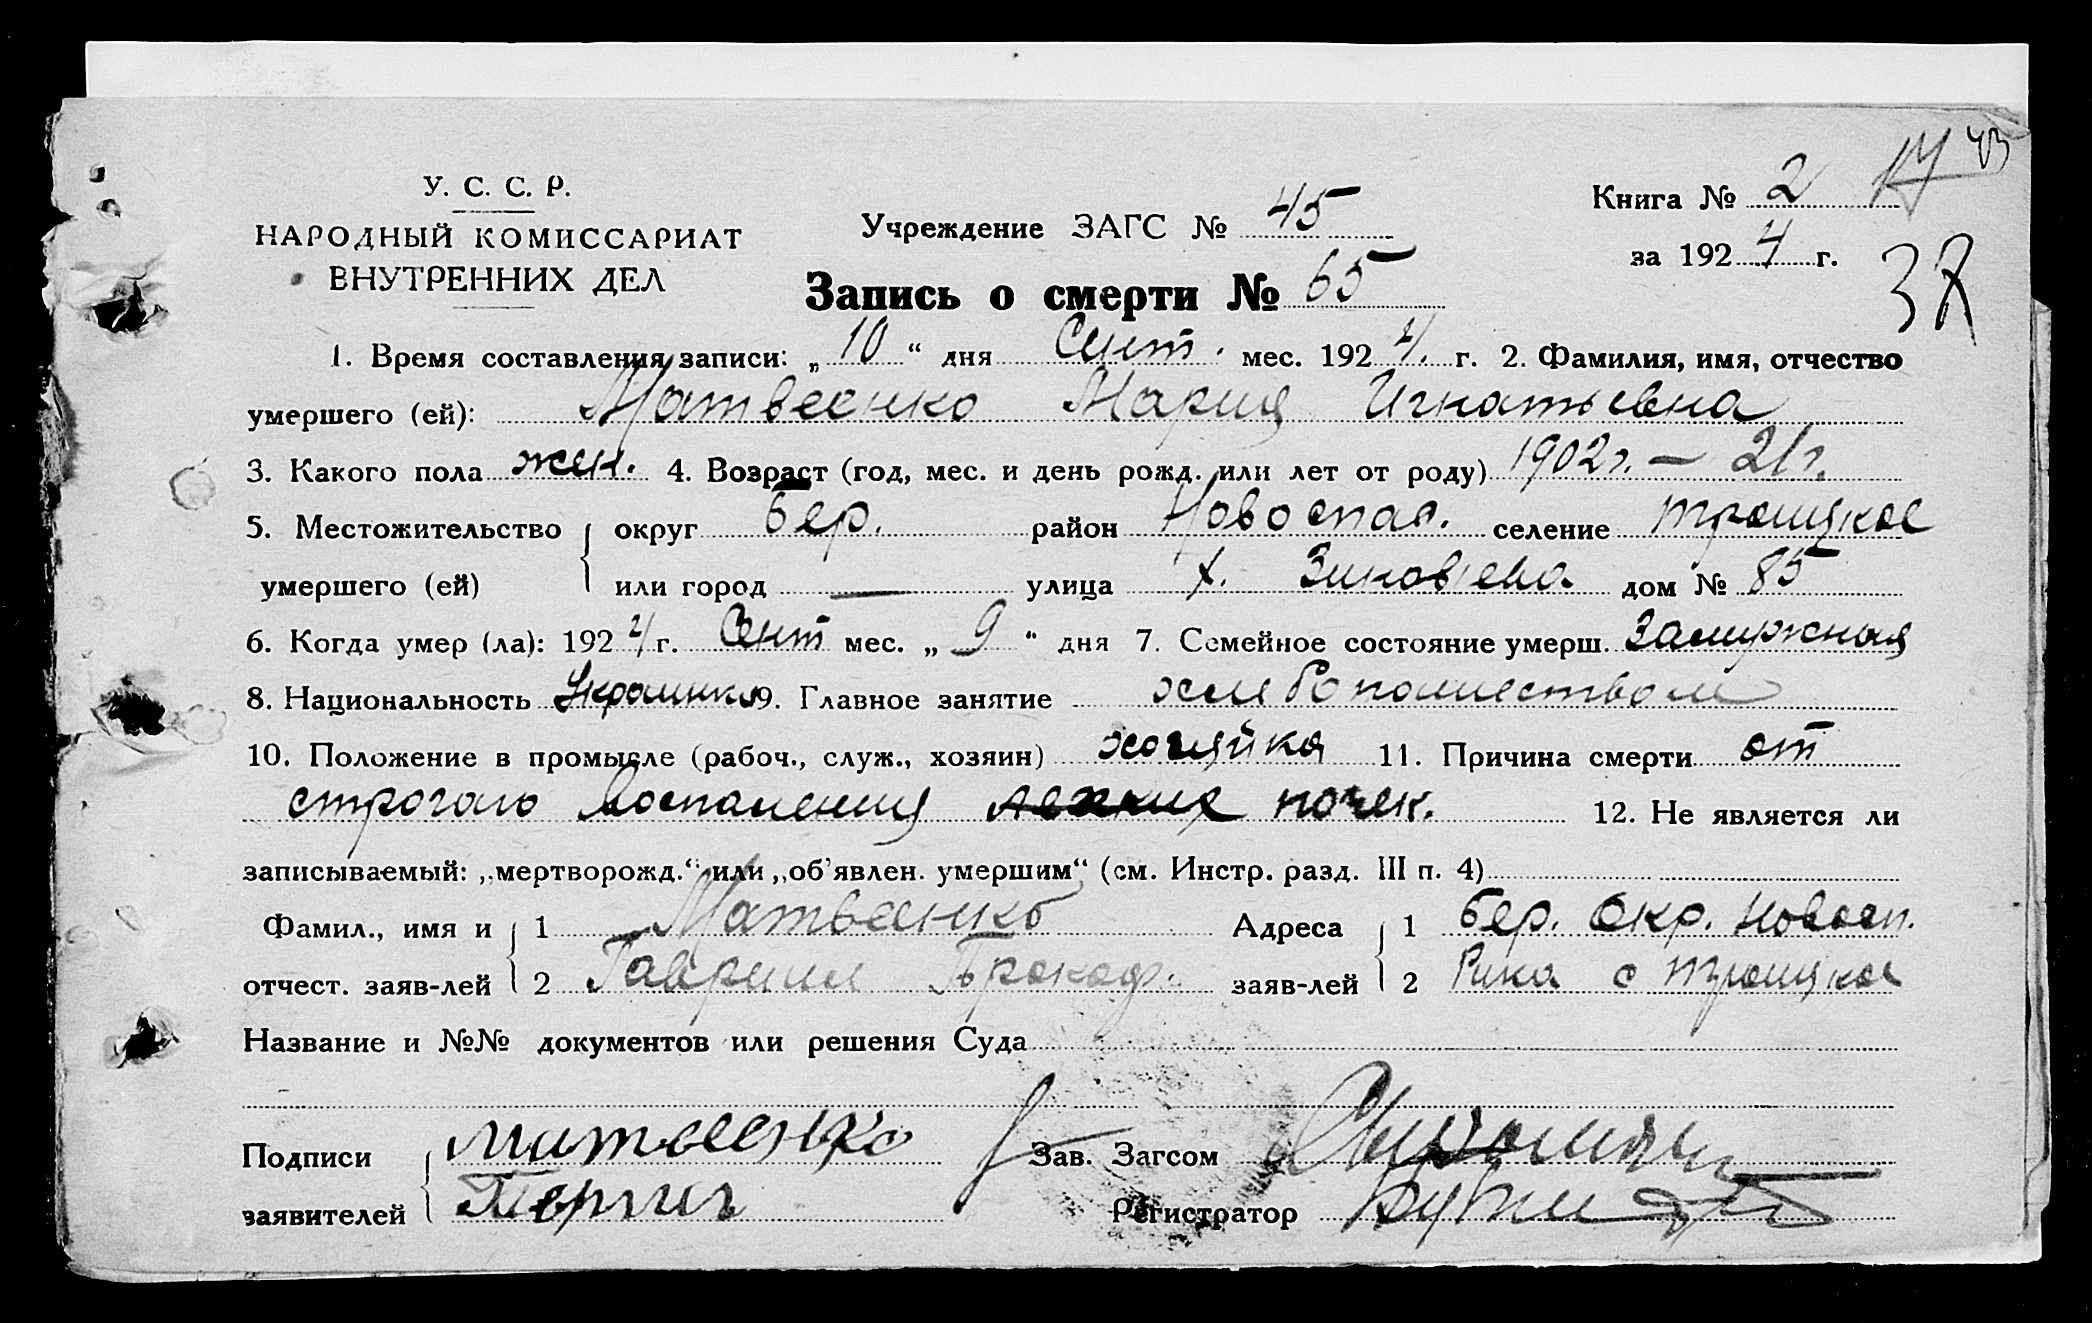 У. С. С. Р.
НАРОДНЫЙ КОМИССАРИАТ
ВНУТРЕННИХ ДЕЛ
Учреждение ЗАГС № 45
Запись о смерти № 65
Книга № 2
за 1924 г.
37
1. Время составления записи: „10“ дня Сент. мес. 1924. г. 2. Фамилия, имя, отчество
умершего (ей): Матвеенко Мария Игнатьевна
3. Какого пола жен. 4. Возраст (год, мес. и день рожд. или лет от роду) 1902г. — 21г.
5. Местожительство округ Бер. район Новоспас. селение Троицкое
умершего (ей) или город — улица х. Зиновьева дом № 85
6. Когда умер (ла): 1924 г. Сент мес. „9“ дня 7. Семейное состояние умерш. Замужняя
8. Национальность Украинка 9. Главное занятие хлебопашеством
10. Положение в промысле (рабоч., служ., хозяин) хозяйка 11. Причина смерти от
строгого Воспаления легких почек. 12. Не является ли
записываемый: „мертворожд.“ или „об'явлен. умершим“ (см. Инстр. разд. III п. 4)
Фамил., имя и 1 Матвеенко Адреса 1 Бер. Окр. Новосп.
отчест. заяв-лей 2 Гавриил Прокоф. заяв-лей 2 Рика с Троицкое
Название и №№ документов или решения Суда
Подписи Матвеенко Зав. Загсом
заявителей Регистратор